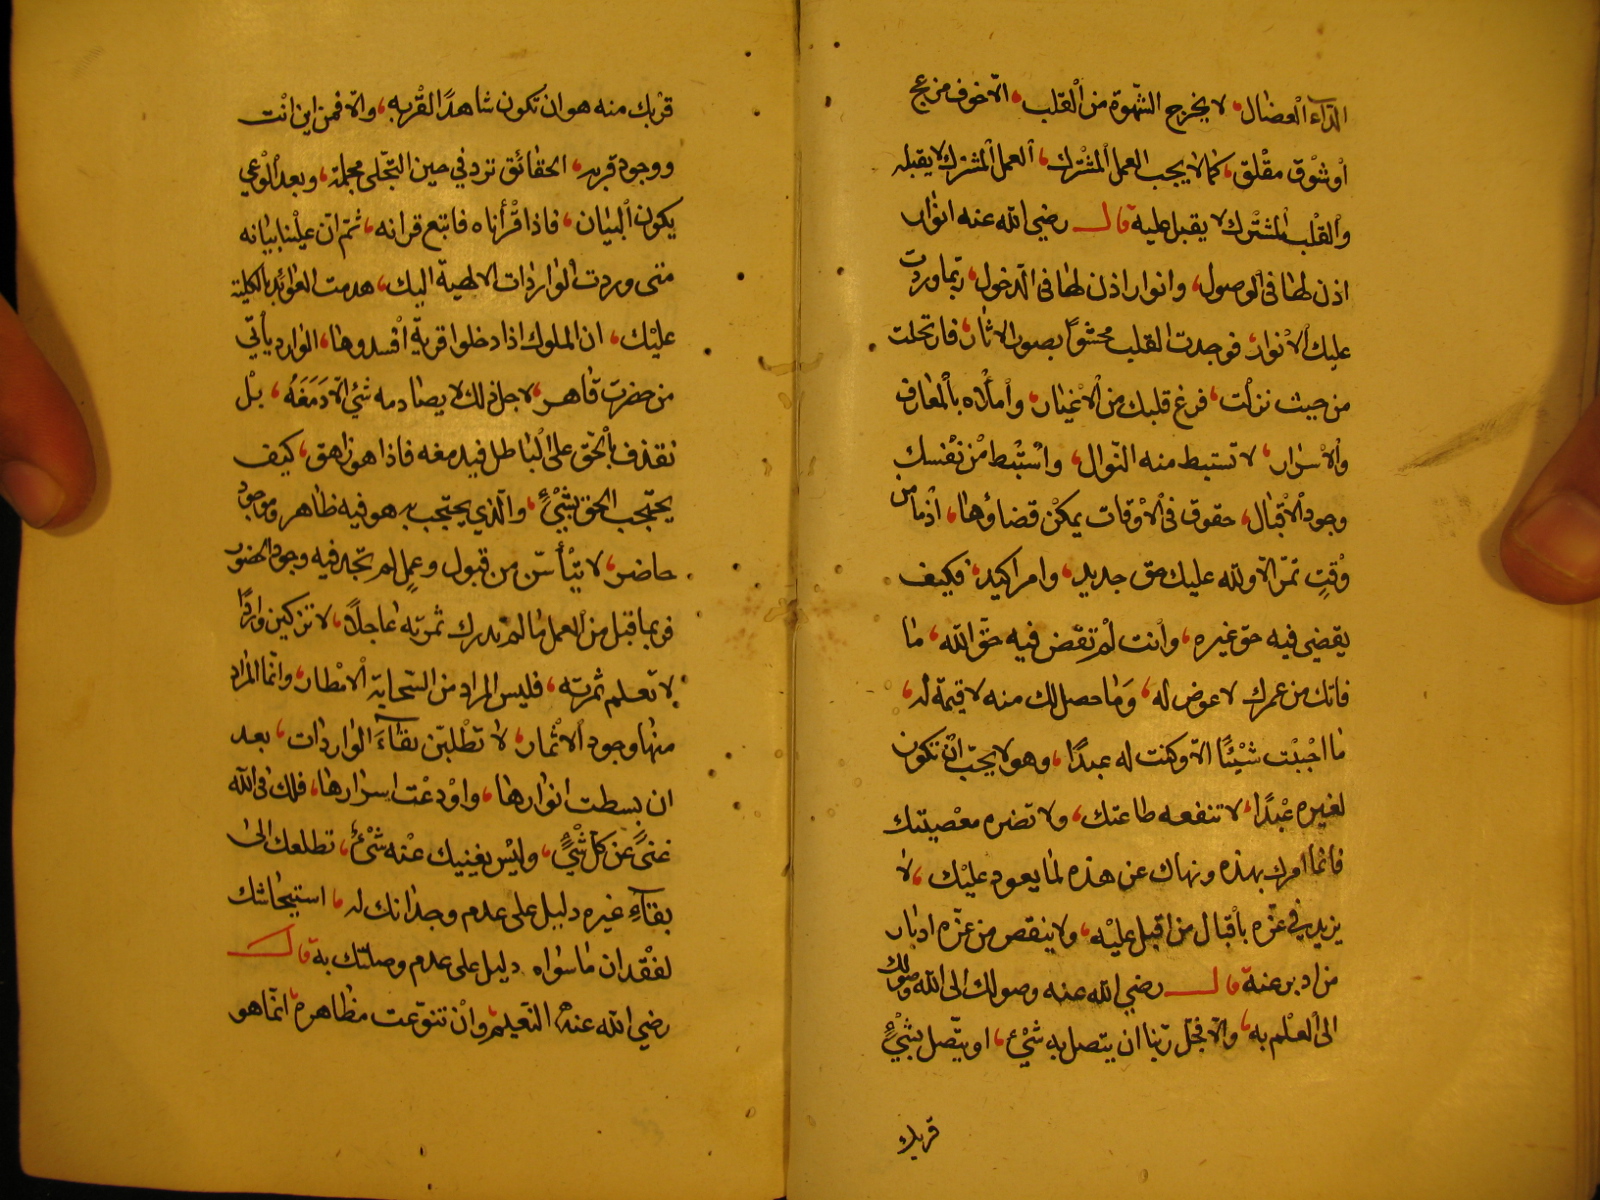 الدّآء العضال، لا يخرج الشّهوة من القلب، الّا خوف مزعج
او شوق مقلق، كما لا يحب العمل المشترك، العمل المشترك لا يقبله
والقلب المشترك لا يقبل عليه قال رضي الله عنه انوار
اذن لها في الوصول، وانوار اذن لها في الدخول، ربّما وردت
عليك الانوار، فوجدت القلب محشوًّا بصور الاثار، فارتحلت
من حيث نزلت، فرغ قلبك من الاغيار، واملأه بالمعارف
والاسرار، لا تستبط منه النّوال، واستبط من نفسك
وجود الاقبال، حقوق في الاوقات يمكن قضاؤها، اذ ما من
وقتٍ تمرّ الّا ولله عليك حق جديد، وامر اكيد، فكيف
يقضي فيه حق غيره، وانت لم تقض فيه حقّ الله، ما
فاتك من عمرك لا عوض له، وما حصل لك منه لا قيمة له،
ما احببت شيئًا الّا وكنت له عبدًا، وهو لا يحبّ ان تكون
لغيره عبدًا، لا تنفعه طاعتك، ولا تضره معصيتك
فانما امرك بهذه ونهاك عن هذه لما يعود عليك، لا
يزيد في عزّه باقبال من اقبل عليه، ولا ينقص من عزّه ادبار
من ادبر عنه قال رضي الله عنه وصولك الى الله وصولك
الى العلم به، والّا فجلّ ربّنا ان يتصل به شئ، او يتّصل بشئٍ
قربك
قربك منه هو ان تكون شاهدًا لقربه، والّا فمن اين انت
ووجود قربه، الحقائق ترد في حين التجّلى مجملة، وبعد الوعي
يكون البيان، فاذا قرأناه فاتبع قرانه، ثمّ انّ علينا بيانه
متى وردت الواردات الالهية اليك، هدمت العوائد بالكلية
عليك، ان الملوك اذا دخلوا قرية افسدوها، الوارد يأتي
من حضرت قاهر، لاجل ذلك لا يصادمه شئ الّا دَمَغَهُ، بل
نقذف بالحق على الباطل فيدمغه فاذا هو زاهق، كيف
يحتجب الحق بشئٍ، والّذي يحتجب به هو فيه ظاهر وموجود
حاضر، لا تيأسنّ من قبول وعملٍ لم تجد فيه وجود الحضور
فربما قبل من العمل ما لم تدرك ثمرته عاجلًا، لا تزكين واردًا
لا تعلم ثمرته، فليس المراد من السّحابة الامطار، وانّما المراد
منها وجود الاثمار، لا تطلبّن بقآء الواردات، بعد
ان بسطت انوارها، واودعت اسرارها، فلك في الله
غنىً عن كلّ شئٍ، وليس يغنيك عنه شئ، تطلعك الى
بقآء غيره دليل على عدم وجدانك له، استيحاشك
لفقدان ما سواه دليل على عدم وصلتك به قال
رضي الله عنه النّعيم، وان تنوّعت مظاهره، انّما هو